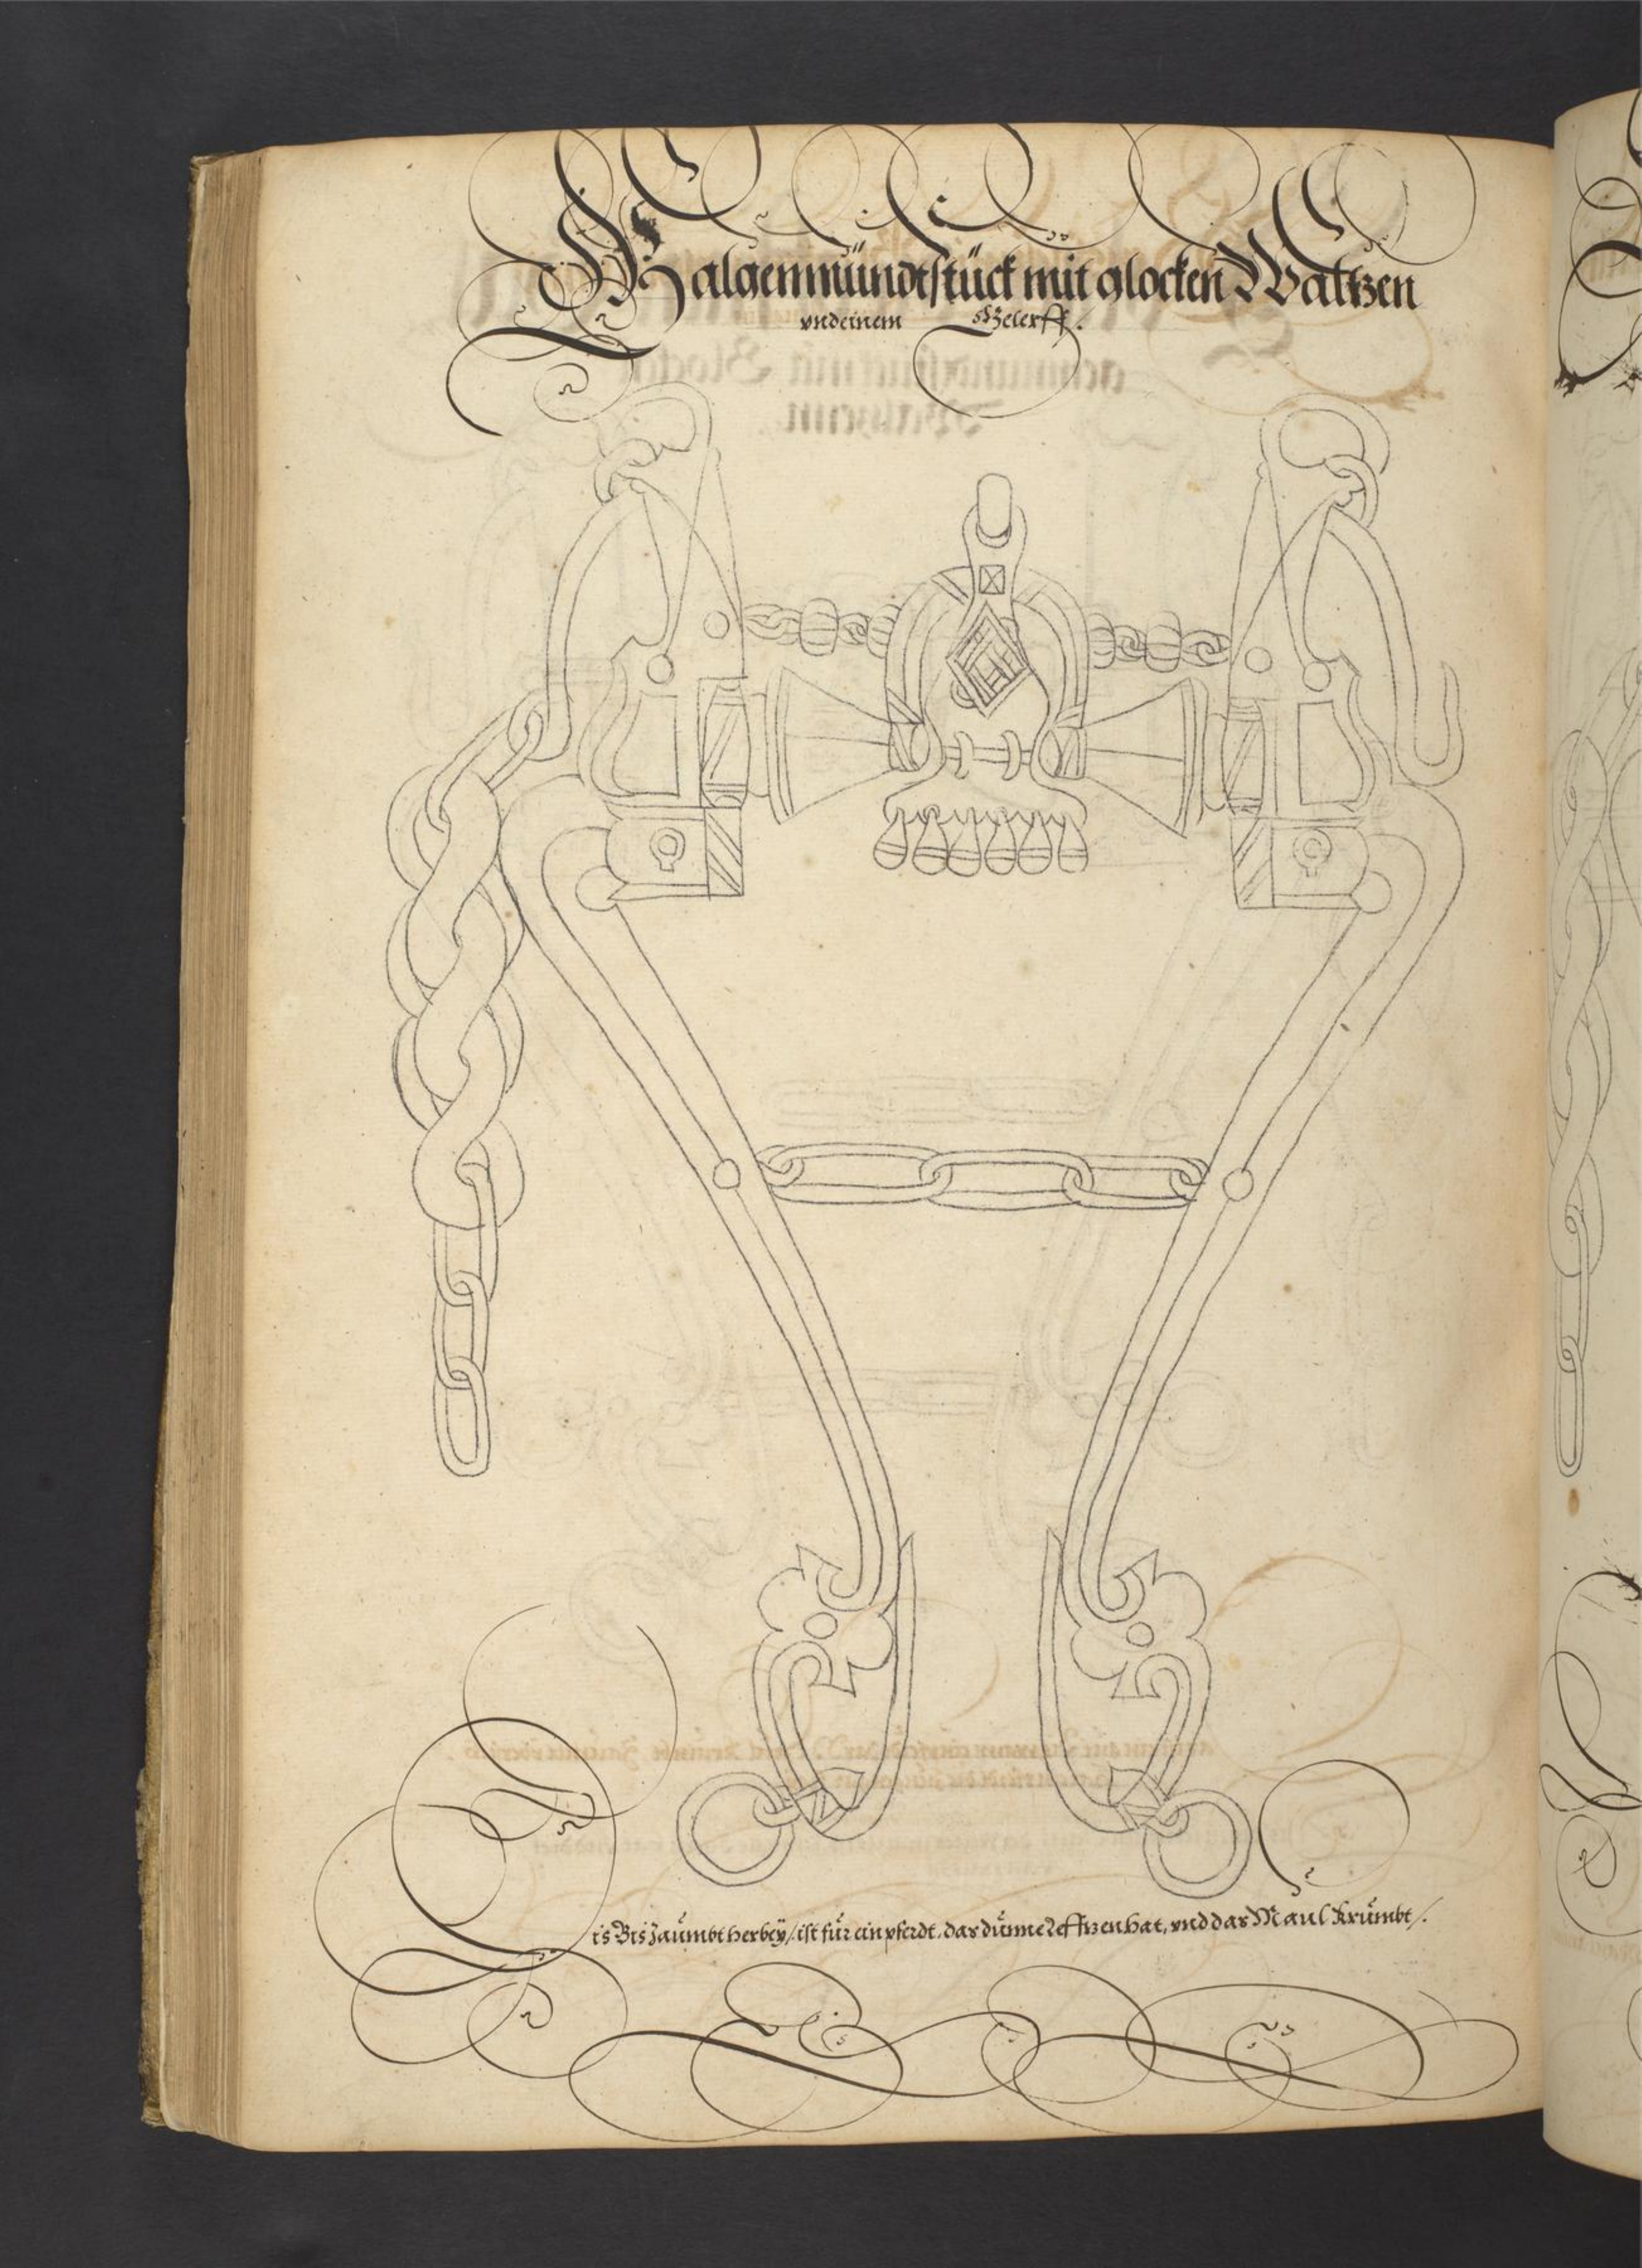 Galgenmündtstück mit glocken Waltzen
vnd einem Gelerff.
is Bis Zaümbt herbeÿ / ist für ein pferdt, das dünne Lefftzen hat, vnd das Maul krümbt /.